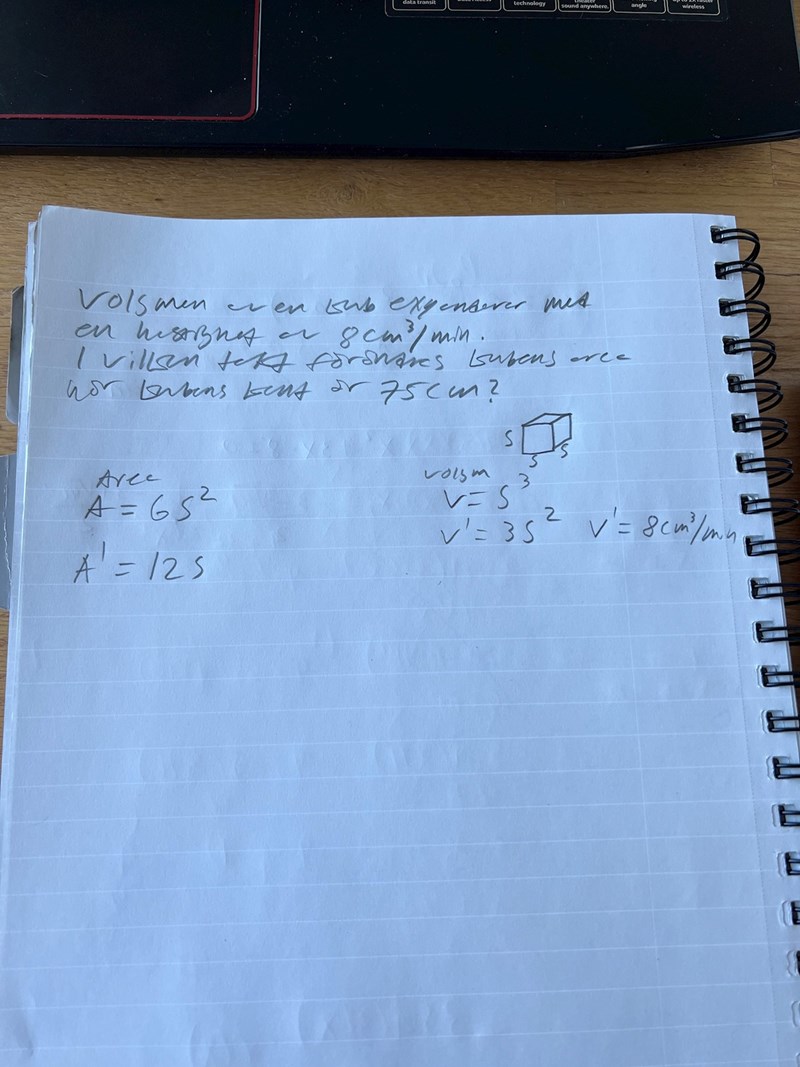 data transit
technology
sound anywhere.
angle
wireless
Volymen av en kub expanderar med
en hastighet av 8cm³/min.
I vilken takt förändras kubens area
när kubens kant är 75cm?
s
s
s
Area
A = 6s²
A' = 12s
volym
V = s³
V' = 3s² V' = 8cm³/min